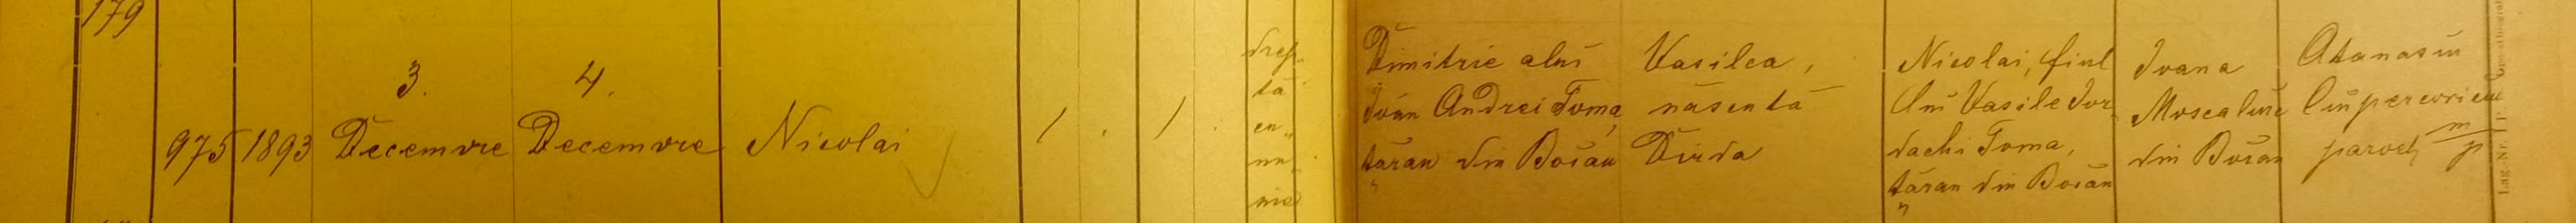 179
975 1893
3. Decemvre
4. Decemvre
Nicolai
1 . 1 .
drep„
tă
cu„
nu„
nie
Dimitrie alui
Ioan Andrei Toma,
țăran din Boian
Vasilca,
născută
Dirda
Nicolai, fiul
lui Vasile Ior„
dachi Toma,
țăran din Boian
Ioana
Moscaliuc
din Boian
Atanasiu
paroch m/p
Lag.-Nr.